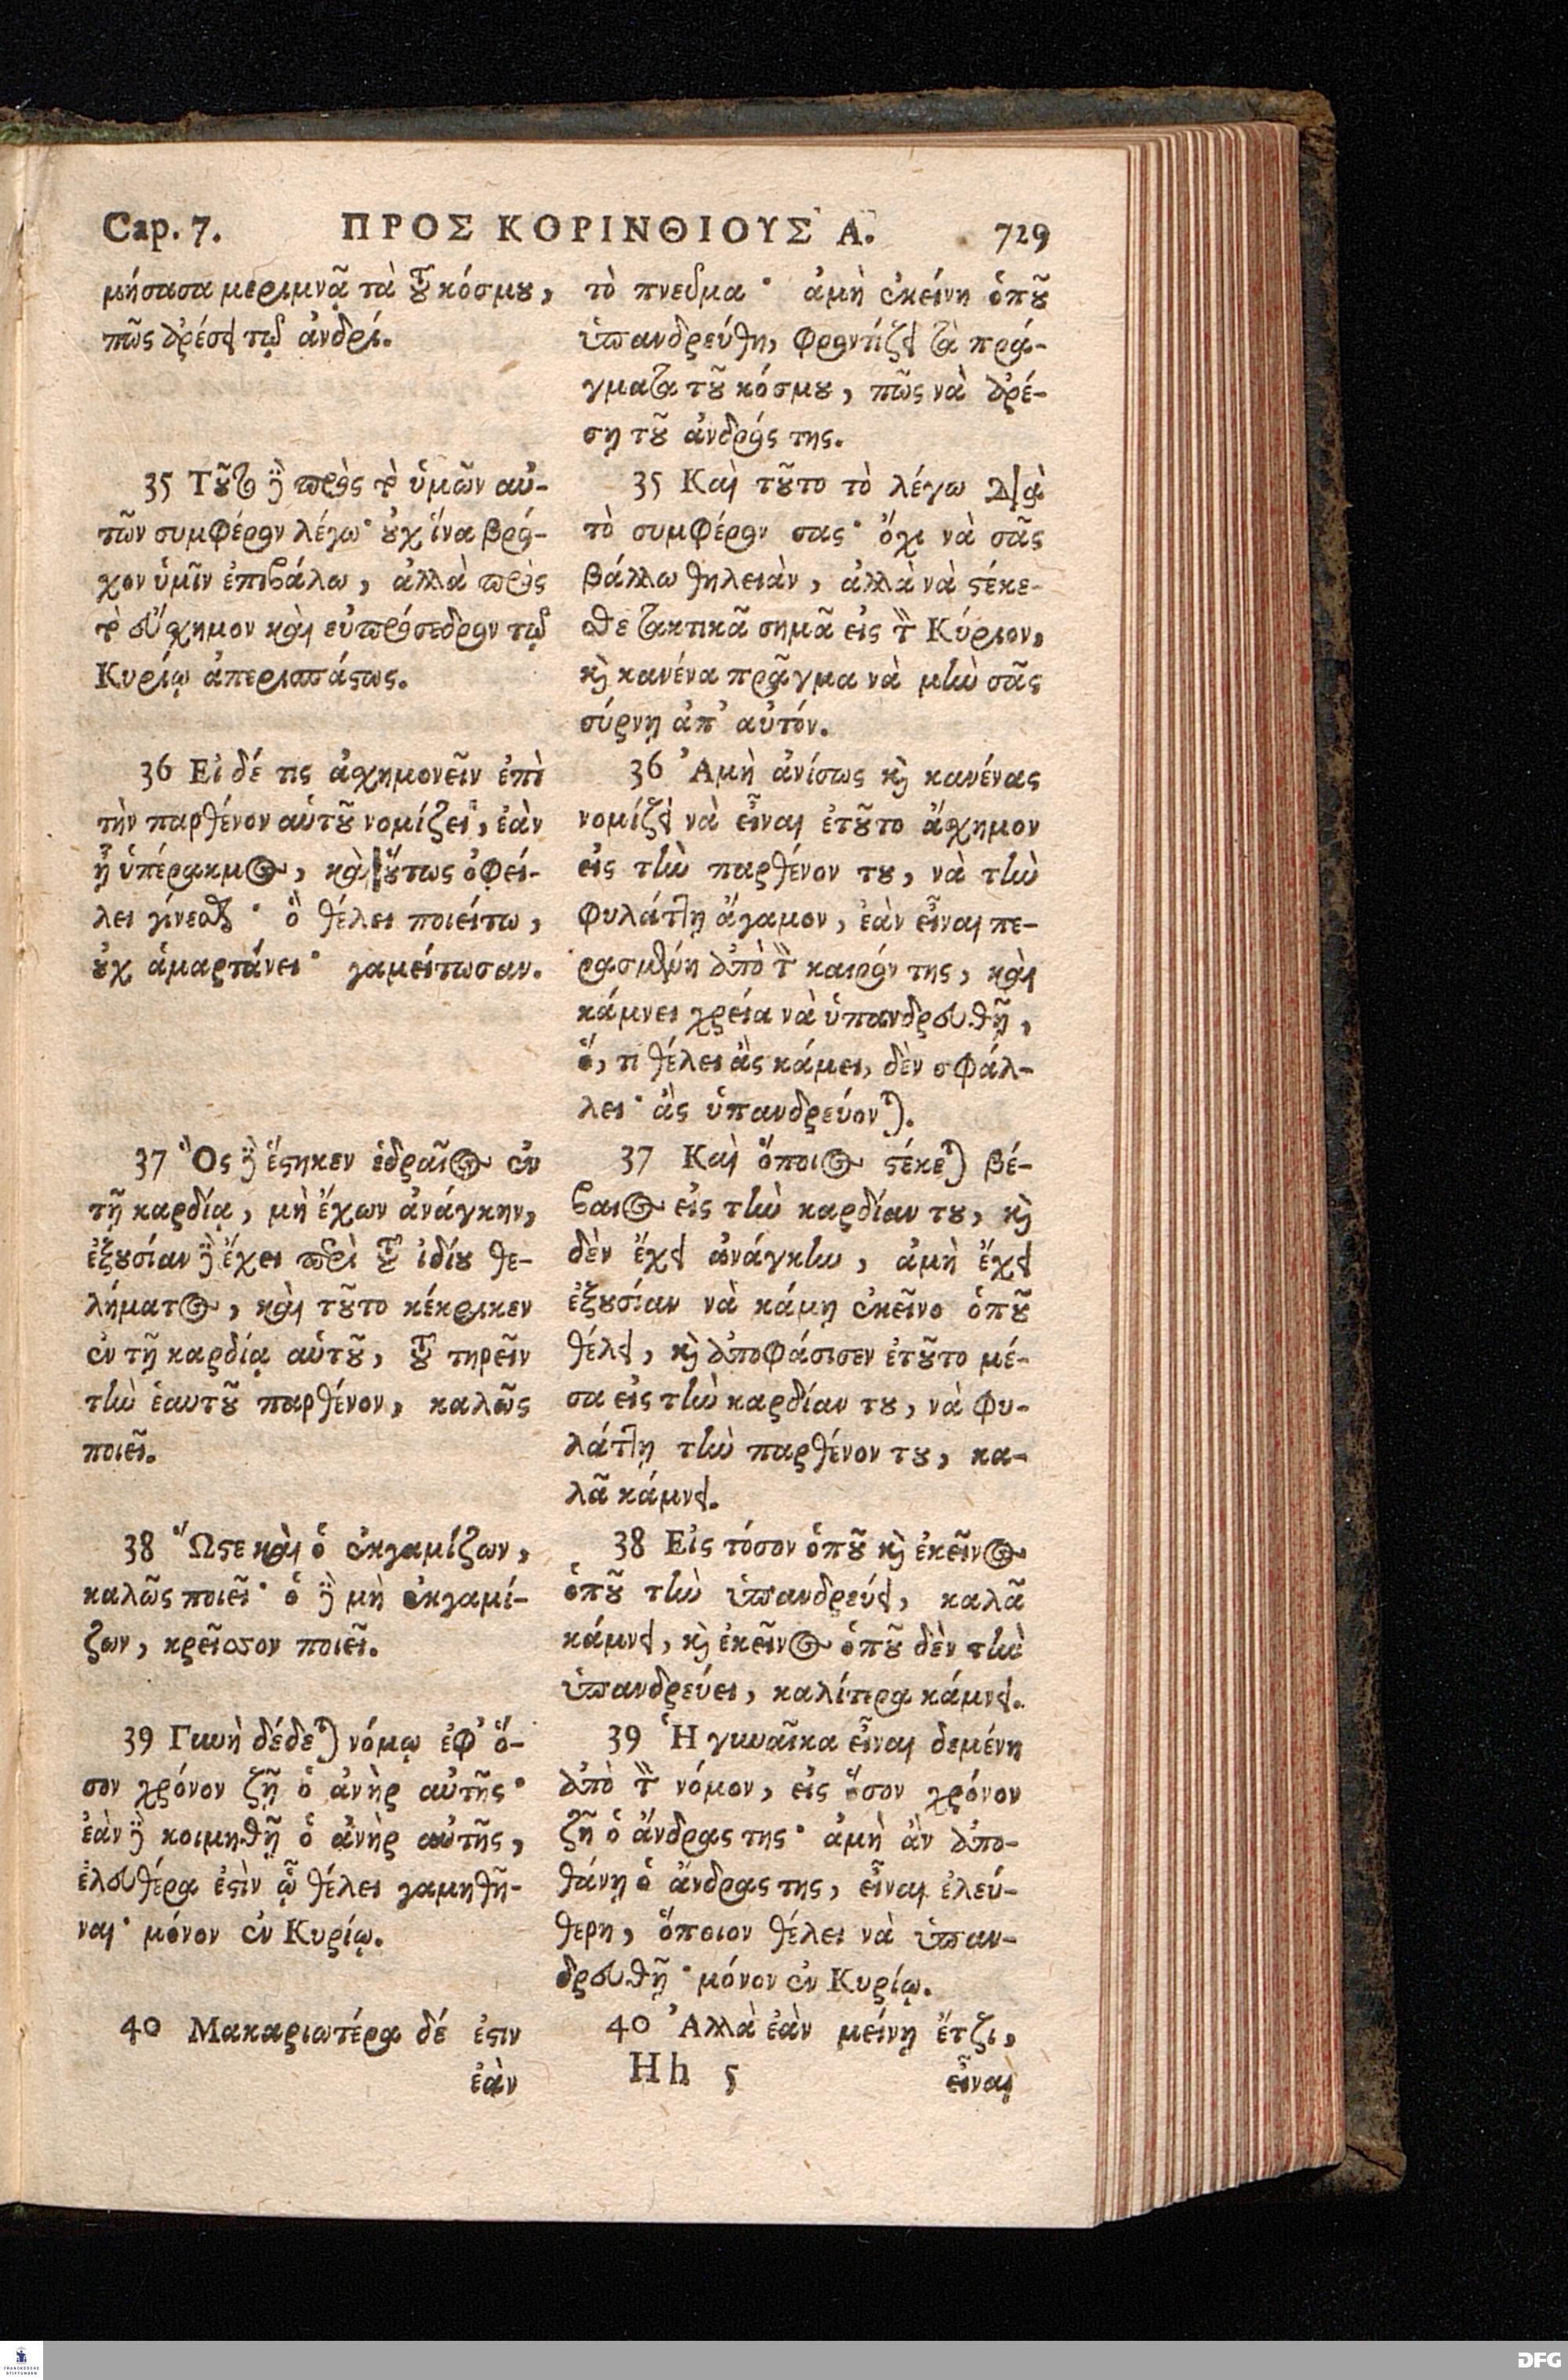 Cap. 7. ΠΡΟΣ ΚΟΡΙΝΘΙΟΥΣ Α. 729
μήσασα μεριμνᾷ τὰ τοῦ κόσμου,
πῶς ἀρέσει τῷ ἀνδρί.
35 Τοῦτο δὲ πρὸς τὸ ὑμῶν αὐ-
τῶν συμφέρον λέγω· οὐχ ἵνα βρό-
χον ὑμῖν ἐπιβάλω, ἀλλὰ πρὸς
τὸ εὔσχημον καὶ εὐπρόσεδρον τῷ
Κυρίῳ ἀπερισπάστως.
36 Εἰ δέ τις ἀσχημονεῖν ἐπὶ
τὴν παρθένον αὑτοῦ νομίζει, ἐὰν
ᾖ ὑπέρακμος, καὶ οὕτως ὀφεί-
λει γίνεσθαι· ὃ θέλει ποιείτω,
οὐχ ἁμαρτάνει· γαμείτωσαν.
37 Ὃς δὲ ἕστηκεν ἑδραῖος ἐν
τῇ καρδίᾳ, μὴ ἔχων ἀνάγκην,
ἐξουσίαν δὲ ἔχει περὶ τοῦ ἰδίου θε-
λήματος, καὶ τοῦτο κέκρικεν
ἐν τῇ καρδίᾳ αὑτοῦ, τοῦ τηρεῖν
τὴν ἑαυτοῦ παρθένον, καλῶς
ποιεῖ.
38 Ὥστε καὶ ὁ ἐκγαμίζων,
καλῶς ποιεῖ· ὁ δὲ μὴ ἐκγαμί-
ζων, κρεῖσσον ποιεῖ.
39 Γυνὴ δέδεται νόμῳ ἐφ' ὅ-
σον χρόνον ζῇ ὁ ἀνὴρ αὐτῆς·
ἐὰν δὲ κοιμηθῇ ὁ ἀνὴρ αὐτῆς,
ἐλευθέρα ἐστὶν ᾧ θέλει γαμηθῆ-
ναι· μόνον ἐν Κυρίῳ.
40 Μακαριωτέρα δέ ἐστιν
ἐὰν
τὸ πνεῦμα· ἀμὴ ἐκείνη ὁποῦ
ὑπανδρεύθη, φροντίζει τὰ πρά-
γματα τοῦ κόσμου, πῶς νὰ ἀρέ-
σῃ τοῦ ἀνδρός της.
35 Καὶ τοῦτο τὸ λέγω διὰ
τὸ συμφέρον σας· ὄχι νὰ σᾶς
βάλλω θηλειὰν, ἀλλὰ νὰ στέκε-
σθε τακτικᾶ σημᾶ εἰς τὸν Κύριον,
καὶ κανένα πρᾶγμα νὰ μὴν σᾶς
σύρνῃ ἀπ' αὐτόν.
36 Ἀμὴ ἀνίσως καὶ κανένας
νομίζει νὰ εἶναι ἐτοῦτο ἄσχημον
εἰς τὴν παρθένον του, νὰ τὴν
φυλάττῃ ἄγαμον, ἐὰν εἶναι πε-
ρασμένη ἀπὸ τὸν καιρόν της, καὶ
κάμνει χρεία νὰ ὑπανδρευθῇ,
ὅ, τι θέλει ἂς κάμει, δὲν σφάλ-
λει· ἂς ὑπανδρεύονται.
37 Καὶ ὅποιος στέκεται βέ-
βαιος εἰς τὴν καρδίαν του, καὶ
δὲν ἔχει ἀνάγκην, ἀμὴ ἔχει
ἐξουσίαν νὰ κάμῃ ἐκεῖνο ὁποῦ
θέλει, καὶ ἀποφάσισεν ἐτοῦτο μέ-
σα εἰς τὴν καρδίαν του, νὰ φυ-
λάττῃ τὴν παρθένον του, κα-
λᾶ κάμνει.
38 Εἰς τόσον ὁποῦ καὶ ἐκεῖνος
ὁποῦ τὴν ὑπανδρεύει, καλᾶ
κάμνει, καὶ ἐκεῖνος ὁποῦ δὲν τὴν
ὑπανδρεύει, καλίτερα κάμνει.
39 Ἡ γυναῖκα εἶναι δεμένη
ἀπὸ τὸν νόμον, εἰς ὅσον χρόνον
ζῇ ὁ ἄνδρας της· ἀμὴ ἂν ἀπο-
θάνῃ ὁ ἄνδρας της, εἶναι ἐλεύ-
θερη, ὅποιον θέλει νὰ ὑπαν-
δρευθῇ· μόνον ἐν Κυρίῳ.
40 Ἀλλὰ ἐὰν μείνῃ ἔτζι,
Hh 5 εἶναι
FRANCKESCHE
STIFTUNGEN
DFG